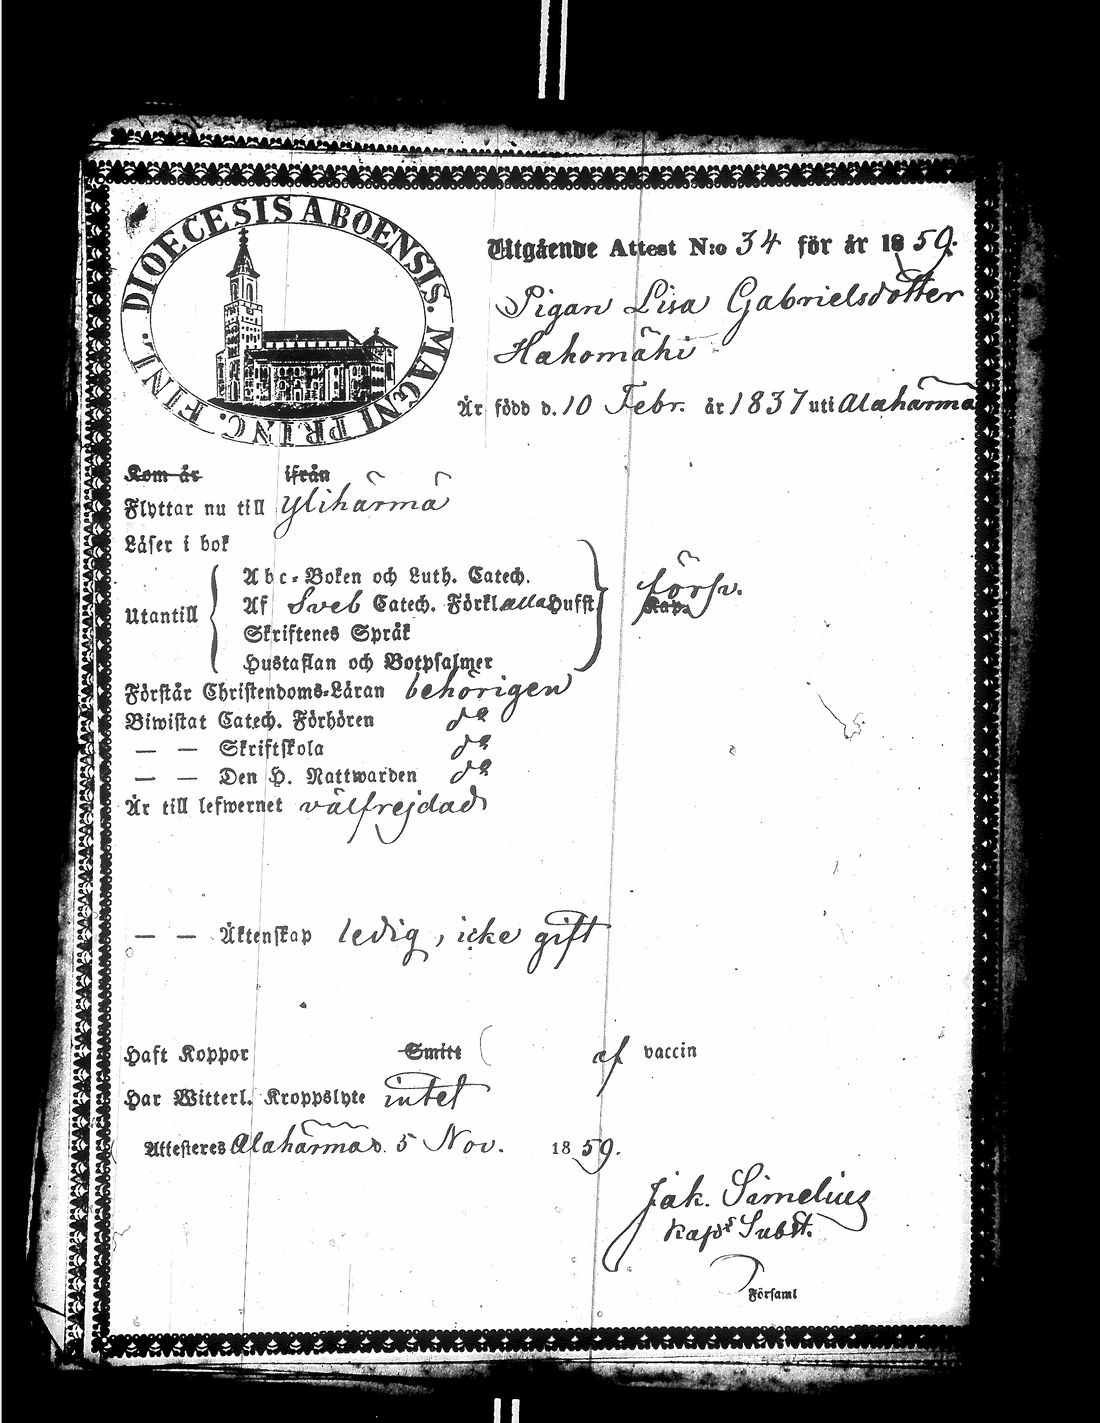 DIOECESIS ABOENSIS. MAGNI PRINC. FINL.
Utgående Attest N:o 34 för år 1859.
Pigan Lisa Gabrielsdotter
Hakomäki
Är född d. 10 Febr. år 1837 uti Alahärmä
Kom år ifrån
Flyttar nu till Ylihärmä
Läser i bok
Utantill
Abc-Boken och Luth. Catech.
Af Sveb Catech. Förkl alla Hufst.
Skriftenes Språk
Hustaflan och Botpsalmer
försv.
Kap.
Förstår Christendoms-Läran behörigen
Biwistat Catech. Förhören da
— — Skriftskola da
— — Den H. Nattwarden da
Är till lefwernet välfrejdad
— — Äktenskap ledig, icke gift
Haft Koppor Smitt af vaccin
Har Witterl. Kroppslyte intet
Attesteres Alahärmä d. 5 Nov. 1859.
Jak. Simelius
Kaps Subst.
Församl